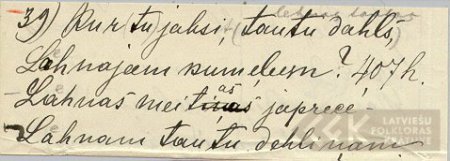 39) Kur (tu) jahsi, tautu dehls,
Lahnajam kumeļeem? 407h.
Lahnas meitas jāprecē
Lahnam tautu dehliņam.
LATVIEŠU
FOLKLORAS